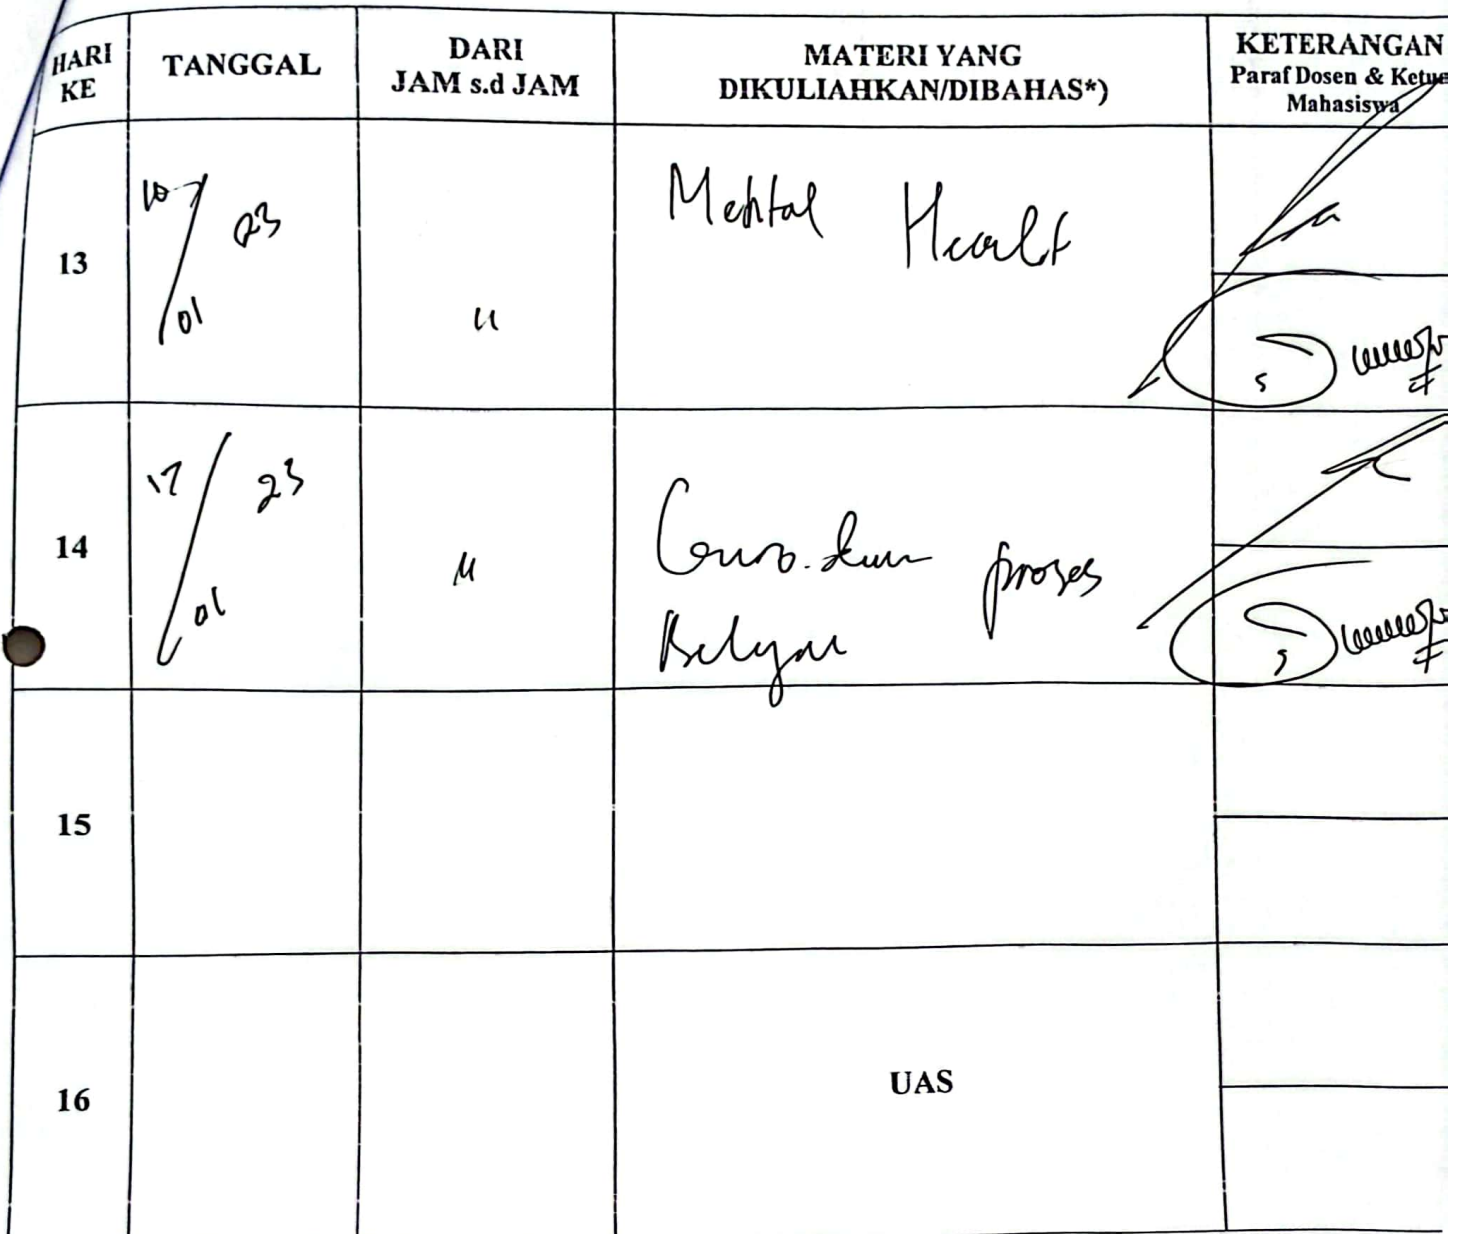 HARI KE
TANGGAL
DARI
JAM s.d JAM
MATERI YANG
DIKULIAHKAN/DIBAHAS*)
KETERANGAN
Paraf Dosen & Ketua
Mahasiswa
13
10/01 23
"
Mental Healt
14
17/01 23
"
proses
15
16
UAS